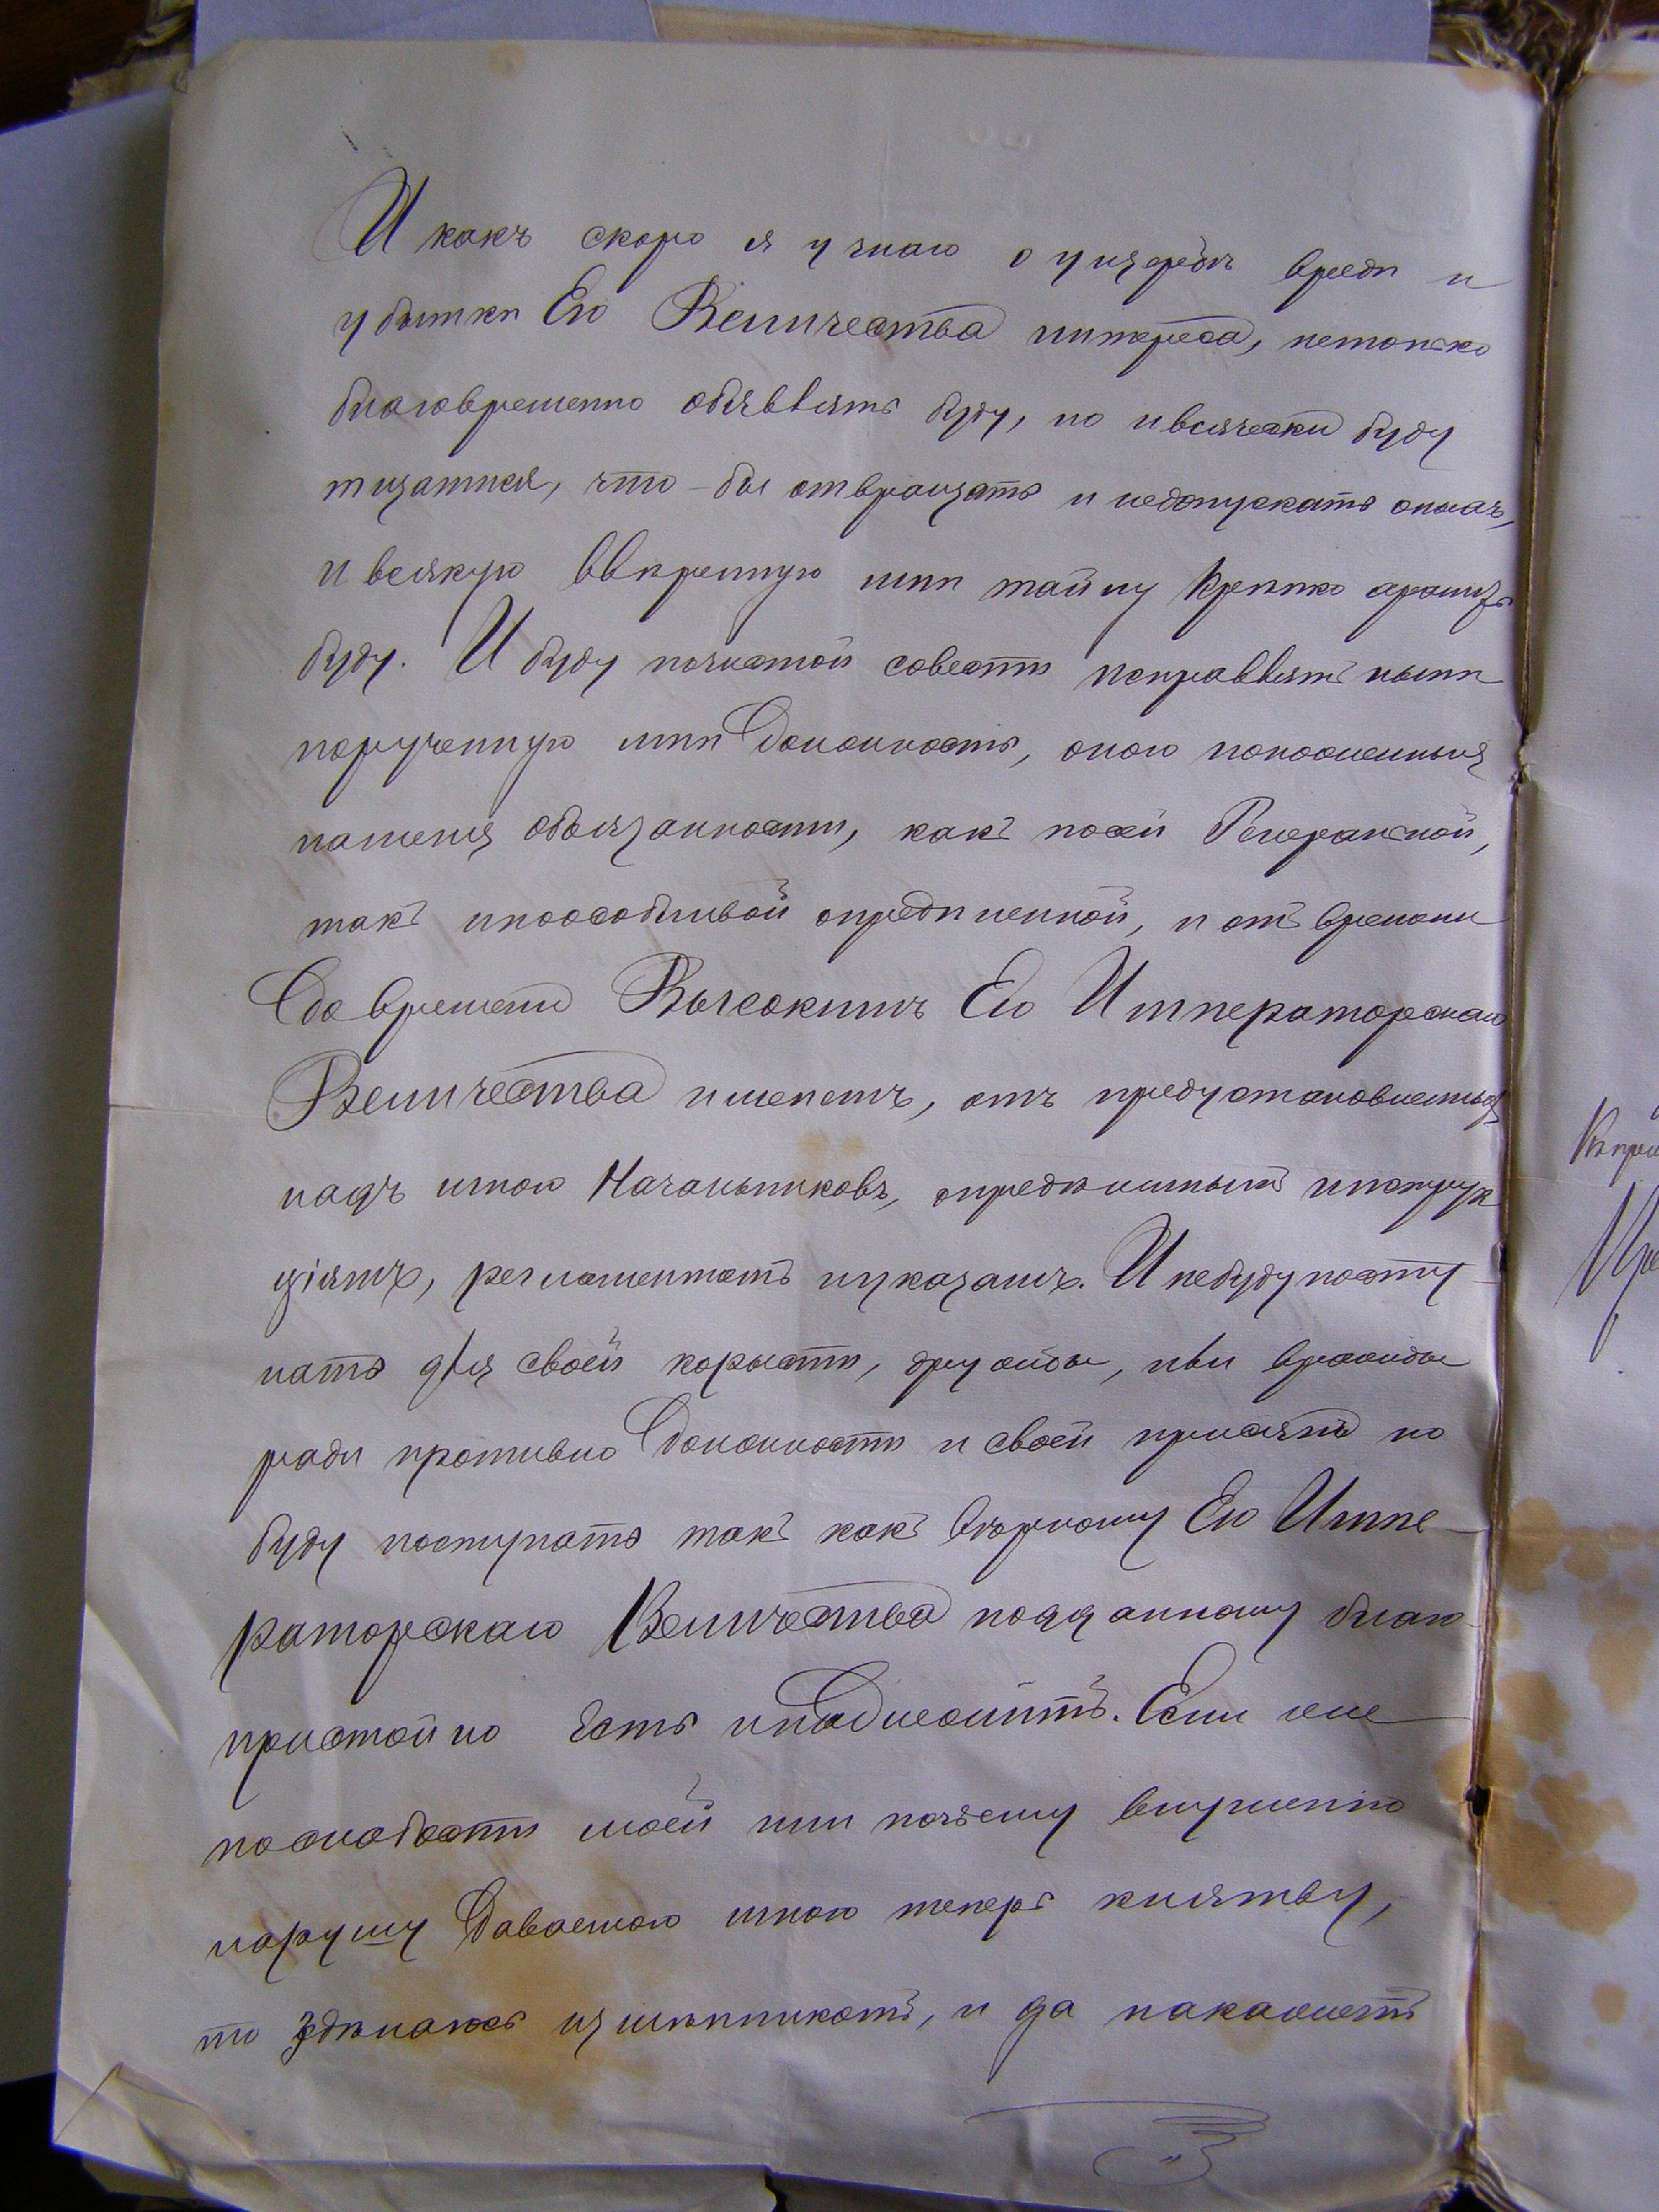 И какъ скоро я узнаю о ущербѣ вредѣ и
убыткѣ Его Величества интереса, нетолько
благовременно объявлять буду, но и всячески буду
тщатися, что-бы отвращать и недопускать онымъ,
и всякую ввѣренную мнѣ тайну крѣпко хранить
буду. И буду почистой совести исправлять нынѣ
порученную мнѣ Должность, оною положенныя
наменя обьязанности, какъ посей Генеральной,
такъ ипоособливой опредѣленной, и отъ времени
До времени Высокимъ Его Императорскаго
Величества именемъ, отъ предустановленныхъ
надъ мною Начальниковъ, опредѣленнымъ инструк
ціямъ, регламентамъ иуказамъ. И небуду посту-
пать для своей корысти, дружбы, или вражды
ради противно Должности и своей присягѣ но
буду поступать такъ какъ вѣрному Его Импе-
раторскаго Величества подданному благо-
пристойно Есть инадлежитъ. Если же
послабости моей или почьему внушенію
нарушу Даваемою мною теперь клятву,
то здѣлаюсь измѣнникомъ, и да накажетъ
Крѣ